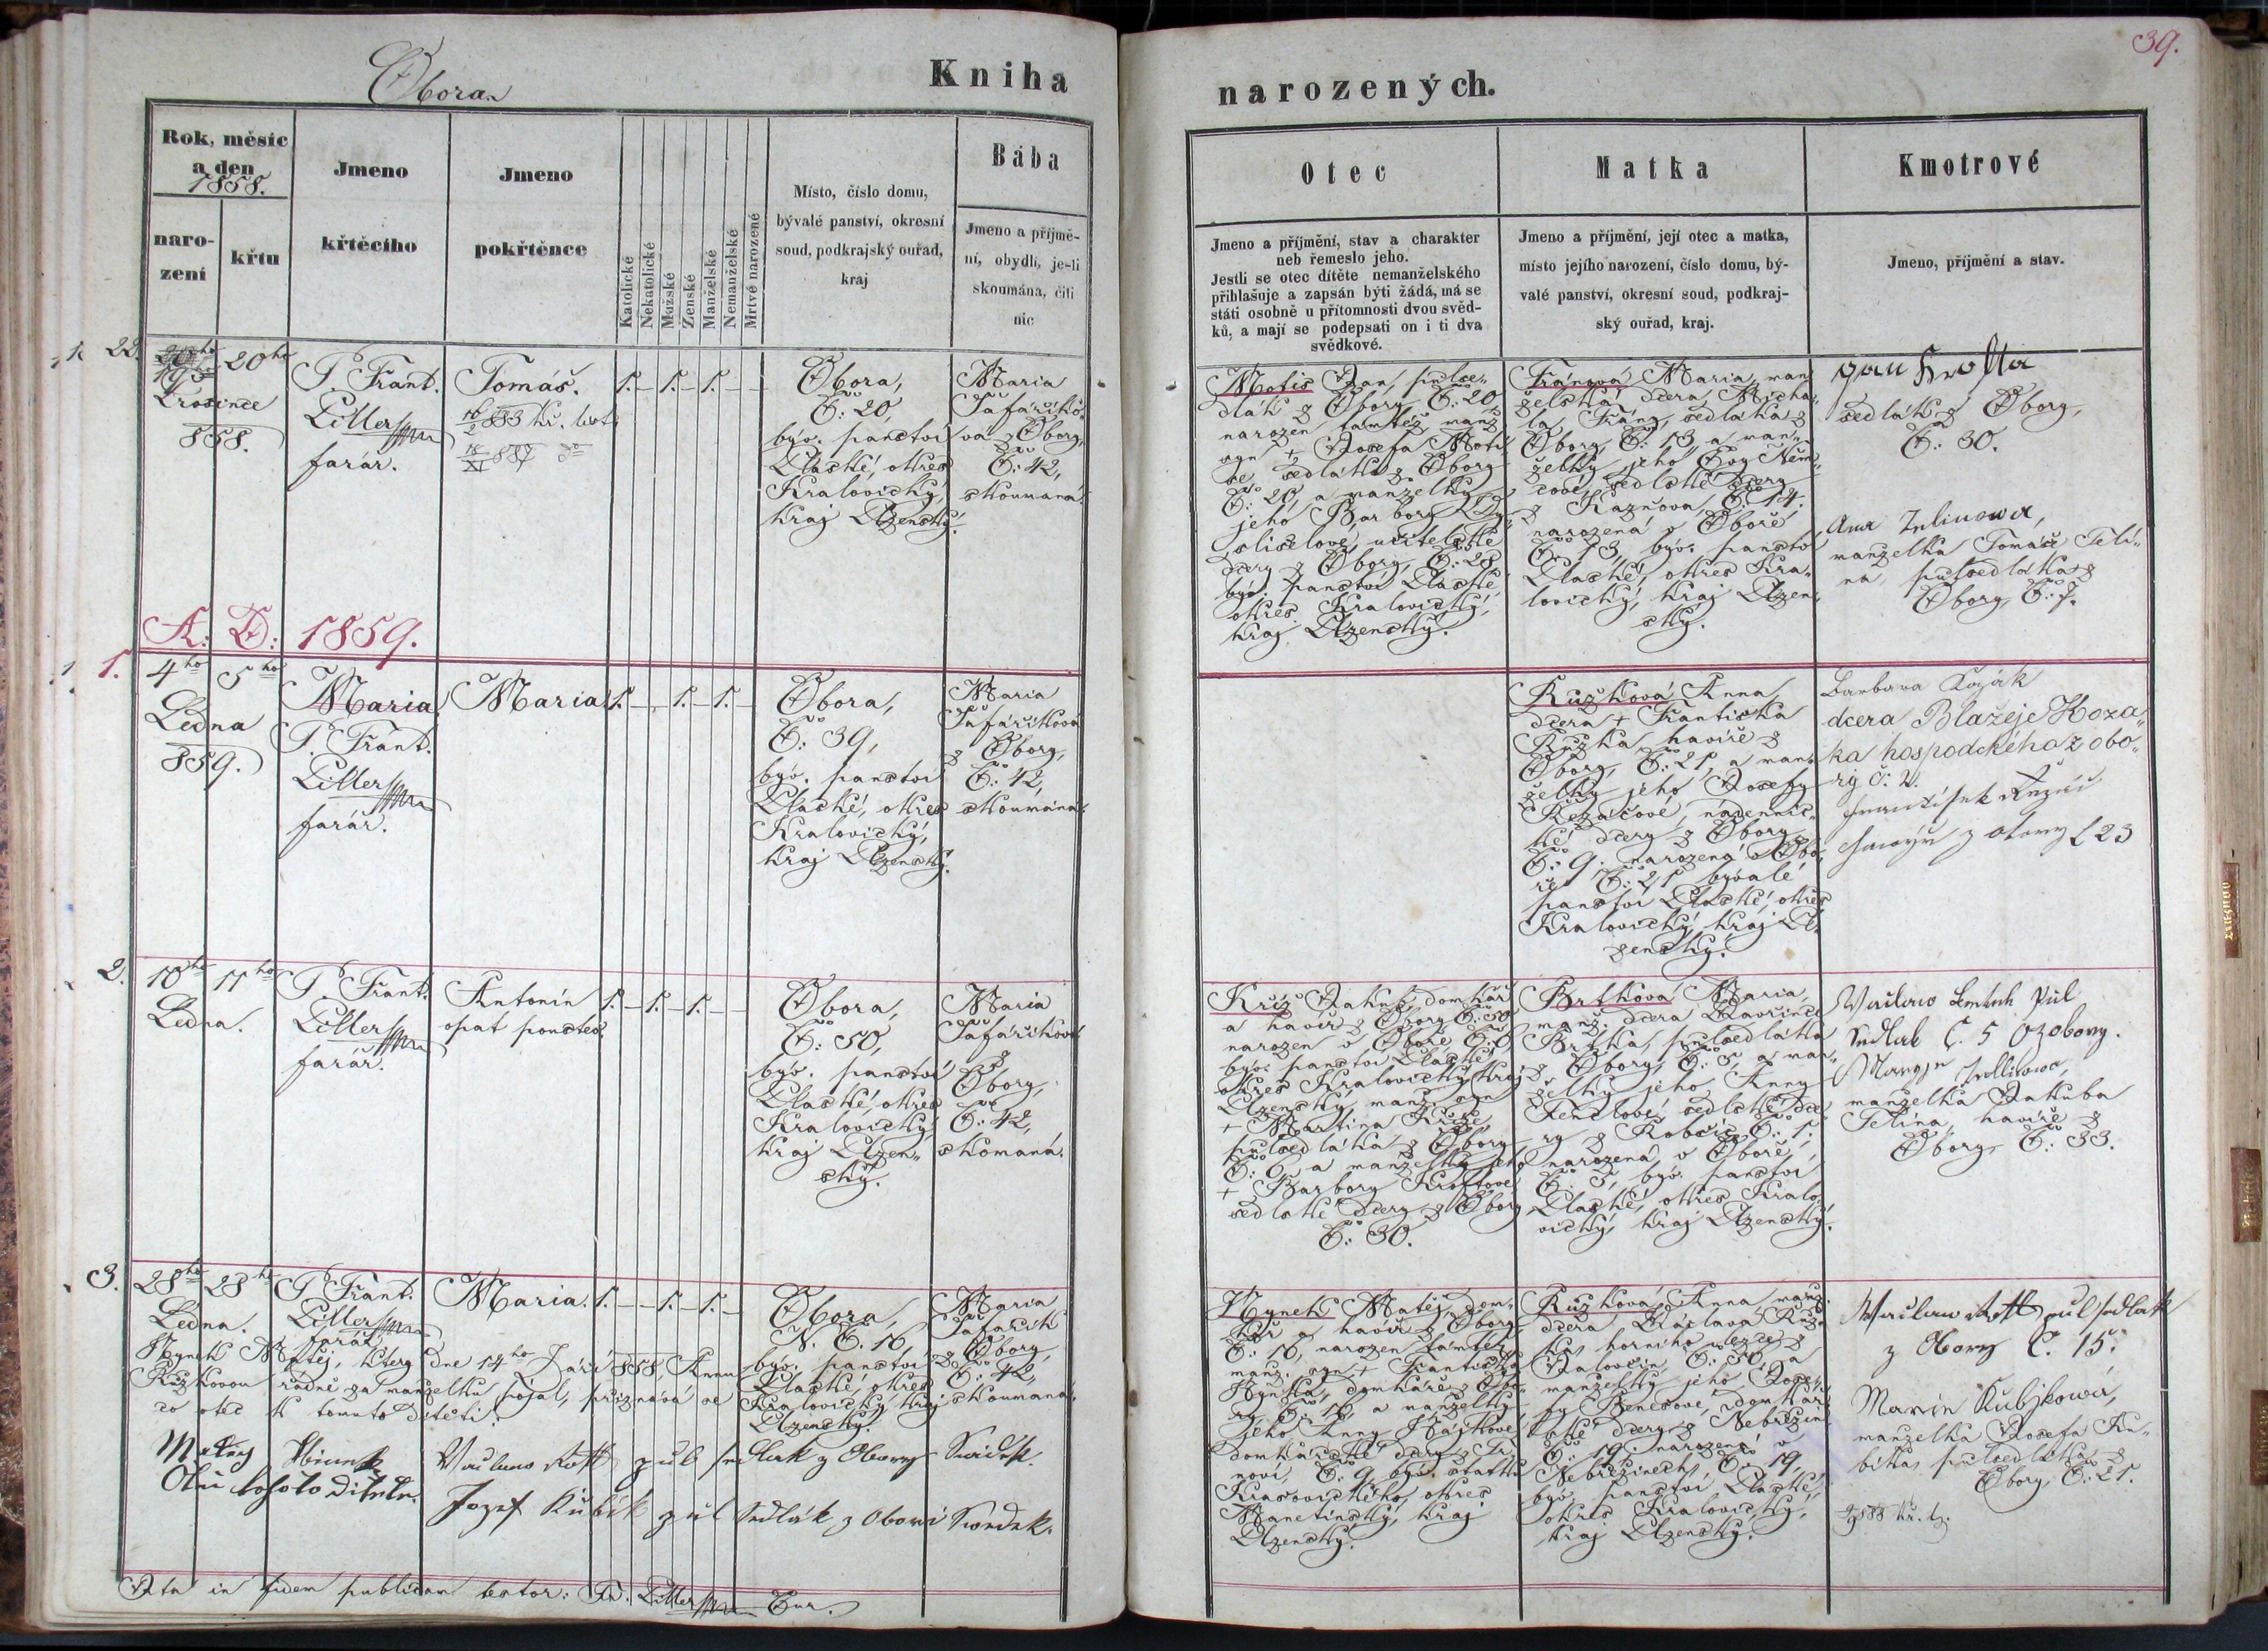 Obora
Kniha
narozených.
39.
Rok, měsíc
a den
1858.
naro-
zení
křtu
Jmeno
křtěcího
Jmeno
pokřtěnce
Katolické
Nekatolické
Mužské
Ženské
Manželské
Nemanželské
Mrtvě narozené
Místo, číslo domu,
bývalé panství, okresní
soud, podkrajský ouřad,
kraj
Bába
Jmeno a příjmě-
ní, obydlí, je-li
skoumána, čili
nic
Otec
Jmeno a příjmění, stav a charakter
neb řemeslo jeho.
Jestli se otec dítěte nemanželského
přiblašuje a zapsán býti žádá, má se
státi osobně u přítomnosti dvou svěd-
ků, a mají se podepsati on i ti dva
svědkové.
Matka
Jmeno a příjmění, její otec a matka,
místo jejího narození, číslo domu, bý-
valé panství, okresní soud, podkraj-
ský ouřad, kraj.
Kmotrové
Jmeno, příjmění a stav.
22.
19
Prosince
858.
20ho
P. Frant.
Liller
farář.
Tomáš.
1. – 1. – 1. –
Obora,
Č: 20,
býv. panství
Plaské, okres
Kralovický,
kraj Plzenský.
Maria
Šafaříko-
va z Obory,
Č: 42,
skoumaná.
Motis Jan, půlse-
dlák z Obory Č: 20
narozen tamtéž, manž.
syn + Josefa Moti-
se sedláka z Obory
Č: 20, a manželky
jeho Barbory
učitelské
dcery z Obory, Č: 28
býv. panství Plaské
okres Kralovický,
kraj Plzenský.
Fránová Maria, man-
želská dcera Micha-
la Frány, sedláka z
Obory, Č: 13 a man-
želky jeho Evy Něm-
cové, sedlské dcery
z Kaznova, Č: 14.
narozená v Oboře,
Č: 13, býv. panství
Plaské, okres Kra-
lovický, kraj Plzen-
ský.
Jan Krofta
sedlák z Obory,
Č: 30.
Ana Telinowa,
manzelka Tomáše Teli-
na půlsedláka z
Obory, Č: 7.
A: D: 1859.
1.
4ho
Ledna
859.
5ho
Maria
P. Frant.
Liller
farář.
Maria
1. – 1. – 1. –
Obora,
Č: 39,
býv. panství
Plaské, okres
Kralovický,
kraj Plzenský.
Maria
Šafaříková
z Obory,
Č: 42,
skoumána.
Růžková Anna
dcera + Františka
Růžka, havíře z
Obory, Č: 21, a man-
želky jeho Josefy
Řezáčové, nádennic-
ké dcery z Obory
Č: 9. narozená v Obo-
ře Č: 21 bývalé
panství Plaské, okres
Kralovický, kraj Pl-
zenský.
Barbara Kozák
dcera Blažeje Koza-
ka hospodckého z obo-
ry č: 2.
2.
10ho
Ledna.
11ho
P. Frant.
Liller
farář.
Antonín
opat poustev.
1. – 1. – 1. –
Obora,
Č: 50,
býv. panství
Plaské, okres
Kralovický,
kraj Plzen-
ský.
Maria
Šafaříková
z
Obory,
Č: 42,
skomaná.
Kříž Jakub, domkář
a havíř z Obory Č: 50
narozen v Oboře Č: 6,
býv. panství Plaské,
okres Kralovický, kraj
Plzenský, manž. syn
+ Martina Kříže,
půlsedláka z Obory
Č: 6 a manželky jeho
+ Barbory Kroftové
sedlské dcery z Obory
Č: 30.
Brtková Maria,
manž. dcera Vavřince
Brtka, půlsedláka
z Obory, Č: 5, a man-
želky jeho Anny
sedlské dce-
ry z Robčic Č: 1.
narozená v Oboře,
Č: 5, býv. panství
Plaské, okres Kralo-
vický, kraj Plzenský.
Půl
Sedlak Č. 5 z obory.
manželka Jakuba
Telína, havíře z
Obory Č: 33.
3.
28ho
Ledna.
28ho
P. Frant.
Liller
farář
Maria.
1. – 1. – 1. –
Obora,
N. Č. 16,
býv. panství
Plaské, okres
Kralovický kraj
Plzenský.
Maria
Šafařík
z Obory,
Č: 42,
skoumaná.
Hynek Matěj, který dne 14ho Září 858, Annu
Růžkovou řádně za manželku pojal, přiznává se
co otec k tomuto dítěti.
Matieg Hinek
Otec tohoto ditete.
Vaclaw Rott pul sedlak z Obory Swidek.
Jozef Kubik pul Sedlák z Obori Swedek.
Hynek Matěj, dom-
kář a havíř z Obory
Č: 16, narozen tamtéž
manž. syn + Františka
Hynka, domkáře z Obo-
ry Č: 16, a manželky
jeho Anny Hájkové
domkářské dcery z Tr-
noví, Č: 9, býv. statku
Krasovického, okres
Manetinský, kraj
Plzenský.
Růžková Anna, manž.
dcera Václava Růž-
ka, horního
Č: 50, a
manželky jeho Jose-
fy Benešové, domkář-
ské dcery z Nebřezin
Č: 19. narozená v
Nebřezinech Č: 19,
býv. panství Plaské,
okres Kralovický,
kraj Plzenský.
Vaclaw Rott pul sedlak
z Obory Č. 15.
Marie Kubjkowá,
manželka Josefa Ku-
bíka, půlsedláka z
Obory, Č: 21.
Ita in fidem publicam testor: Fr. Liller Cur.